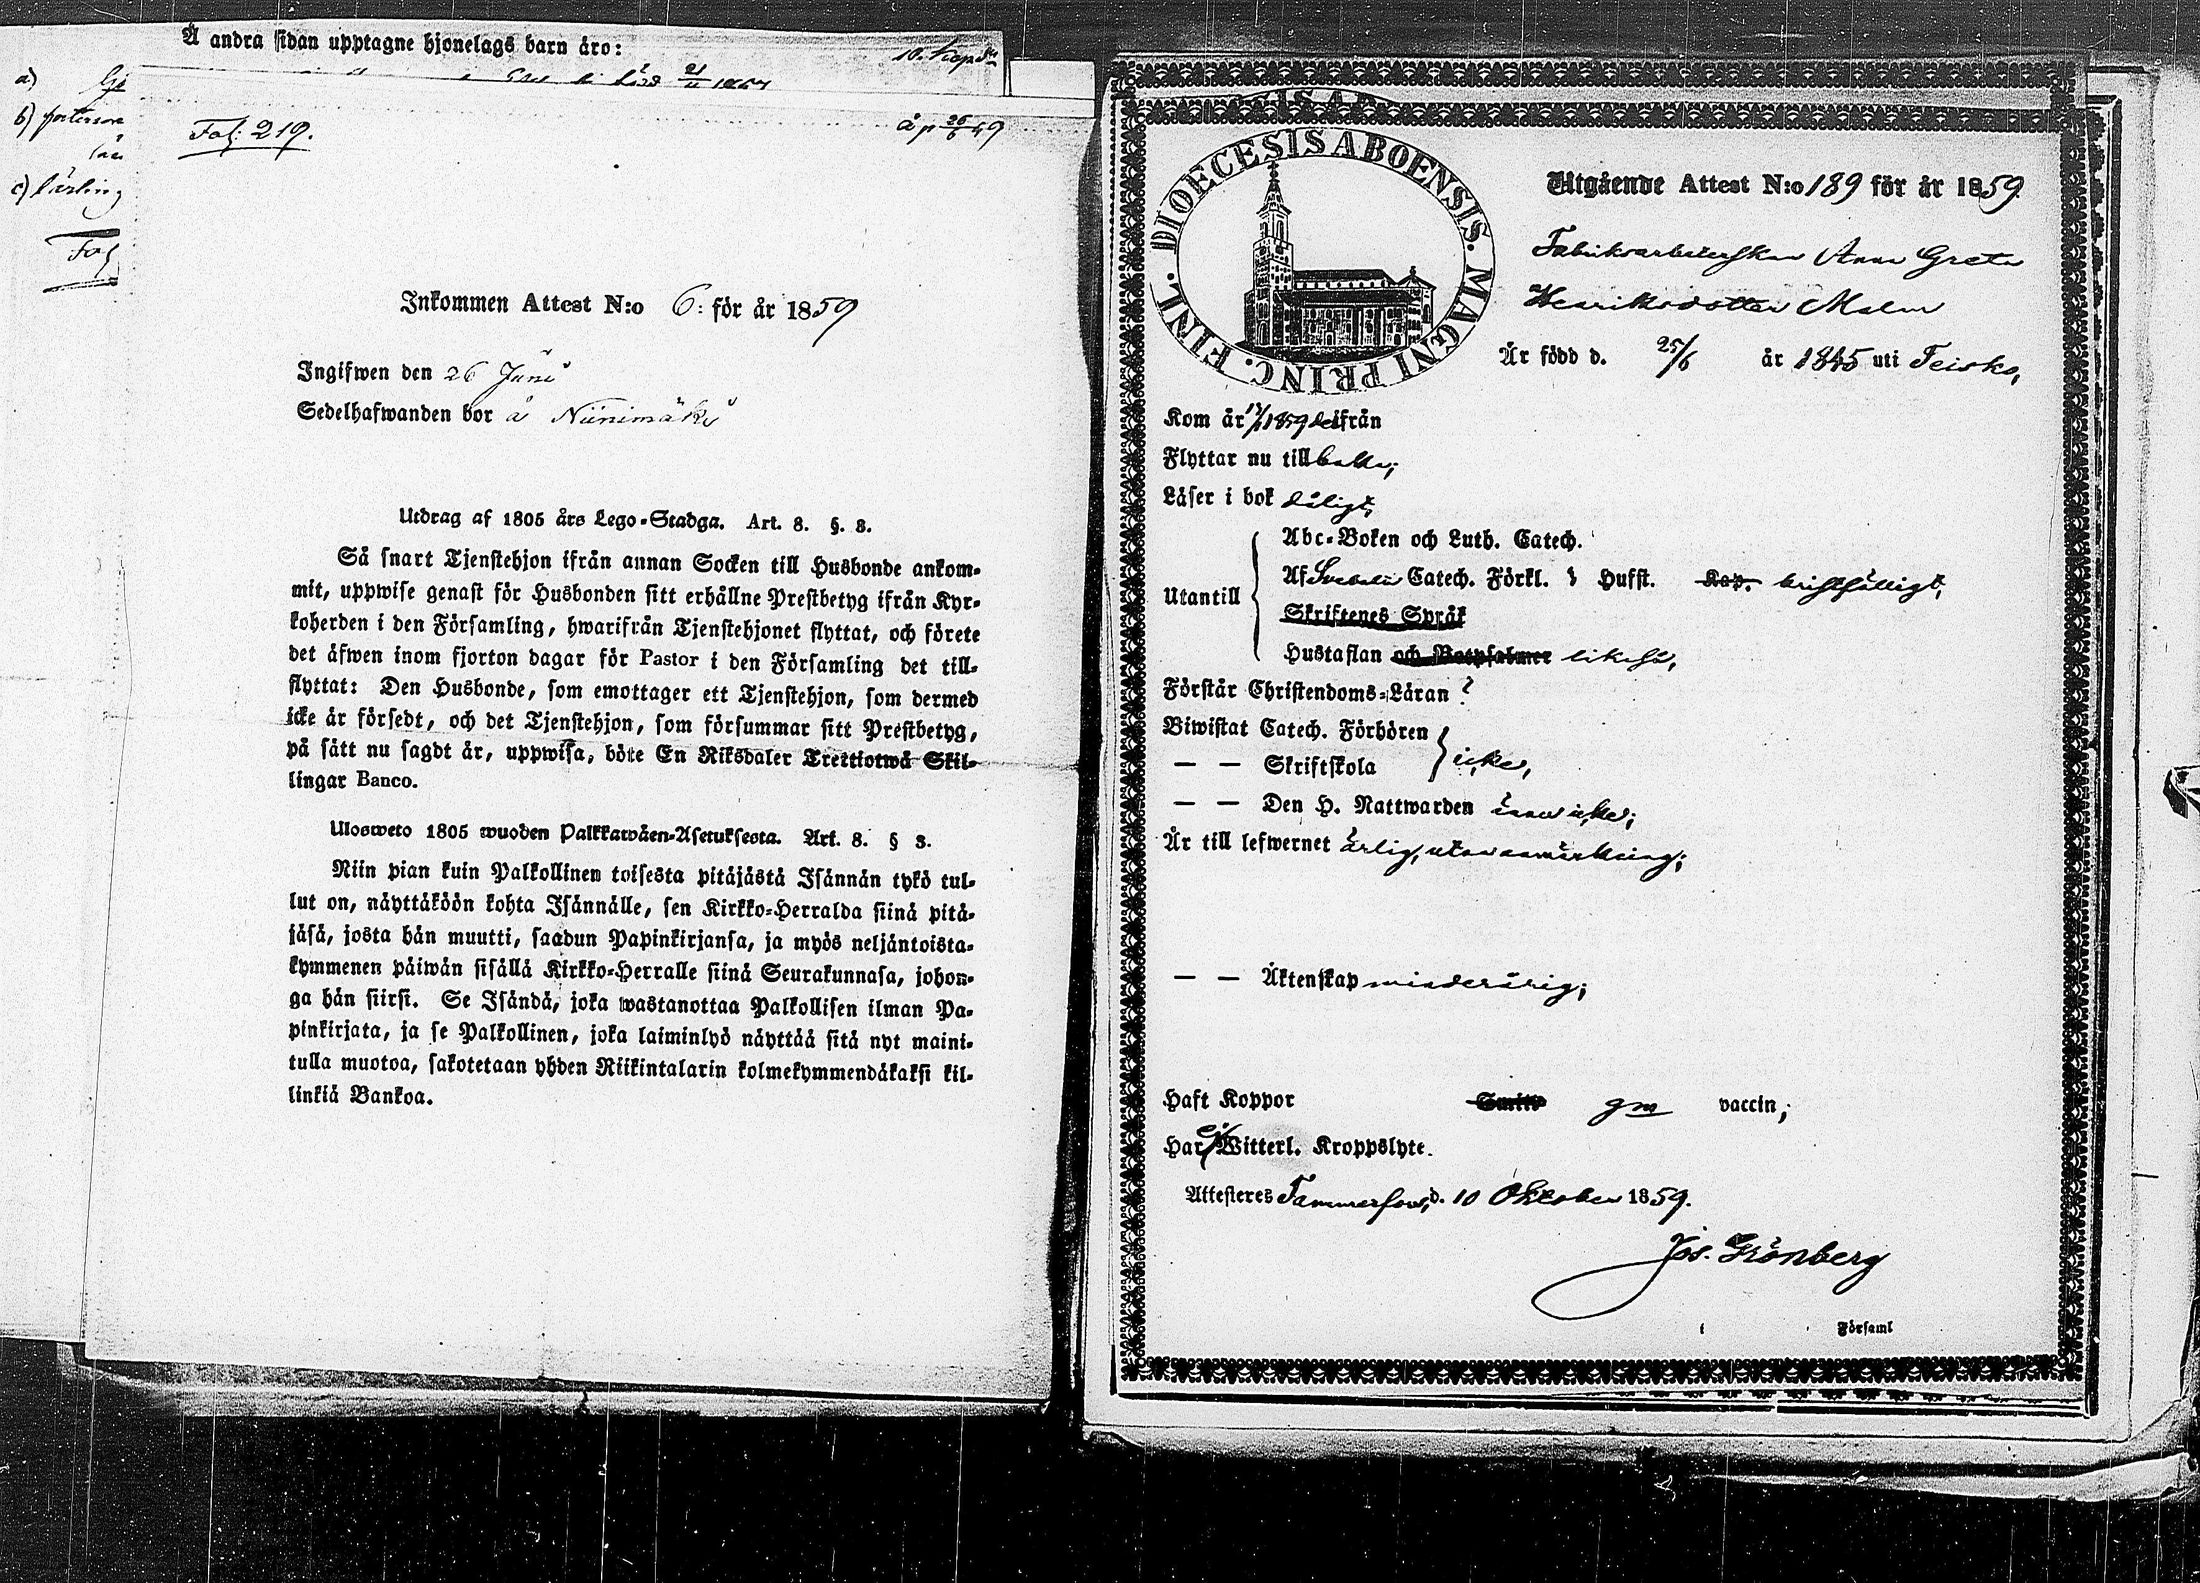 Å andra sidan upptagne hjonelags barn äro:
a)
b)
c) lärling
Fol: 219.
Inkommen Attest N:o 6: för år 1859
Ingifwen den 26 Juni
Sedelhafwanden bor å Niinimäki
Utdrag af 1805 års Lego-Stadga. Art. 8. §. 3.
Så snart Tjenstehjon ifrån annan Socken till Husbonde ankom-
mit, uppwise genast för Husbonden sitt erhållne Prestbetyg ifrån Kyr-
koherden i den Församling, hwarifrån Tjenstehjonet flyttat, och förete
det äfwen inom fjorton dagar för Pastor i den Församling det till-
flyttat: Den Husbonde, som emottager ett Tjenstehjon, som dermed
icke är försedt, och det Tjenstehjon, som försummar sitt Prestbetyg,
på sätt nu sagdt är, uppwisa, böte En Riksdaler Trettiotwå Skil-
lingar Banco.
Ulosweto 1805 wuoden Palkkawäen-Asetuksesta. Art. 8. § 3.
Niin pian kuin Palkollinen toisesta pitäjästä Isännän tykö tul-
lut on, näyttäköön kohta Isännälle, sen Kirkko-Herralda siinä pitä-
jäsä, josta hän muutti, saadun Papinkirjansa, ja myös neljäntoista-
kymmenen päiwän sisällä Kirkko-Herralle siinä Seurakunnasa, johon-
ga hän siirsi. Se Isändä, joka wastanottaa Palkollisen ilman Pa-
pinkirjata, ja se Palkollinen, joka laiminlyö näyttää sitä nyt maini-
tulla muotoa, sakotetaan yhden Riikintalarin kolmekymmendäkaksi kil-
linkiä Bankoa.
DIOECESIS ABOENSIS. MAGNI PRINC. FINL.
Utgående Attest N:o 189 för år 1859.
Fabriksarbeterskan Anna Greta
Henriksdotter Malm
Är född d. 25/6 år 1845 uti Teisko,
Kom år 1859 deifrån
Flyttar nu till
Läser i bok dåligt,
Utantill
Abc-Boken och Luth. Catech.
Af Svebelii Catech. Förkl. Husst. Kap. bristfälligt,
Skriftenes Språk
Hustaflan och Botpsalmer likaså,
Förstår Christendoms-Läran ?
Biwistat Catech. Förhören
— — Skriftskola
icke,
— — Den H. Nattwarden ännu icke;
Är till lefwernet ärlig, utan anmärkning;
— — Äktenskap minderårig;
Haft Koppor Smitt gm vaccin;
Har ej Witterl. Kroppslyte.
Attesteres Tammerfors, d. 10 Oktober 1859.
Jos. Grönberg
i Församl